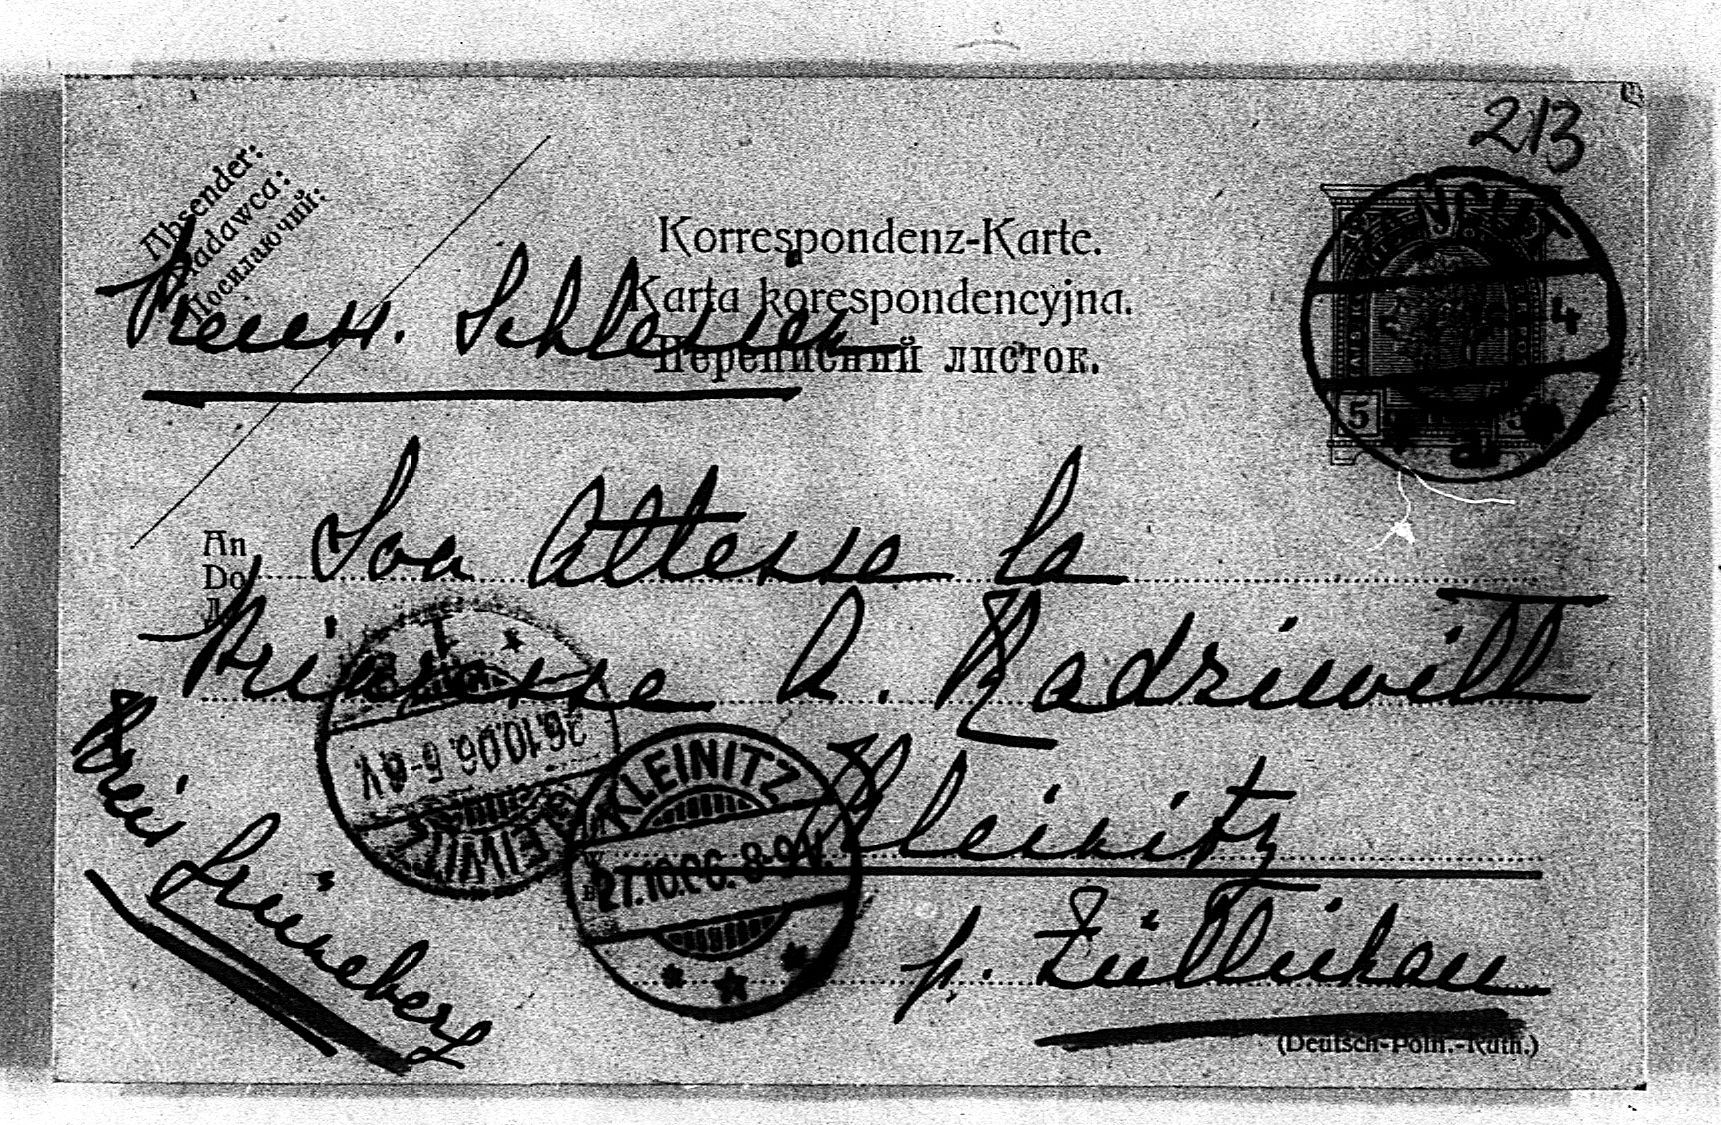 213
Absender:
Nadawca:
Посилаючий:
Korrespondenz-Karte.
Karta korespondencyjna.
Переписний листок.
Preuss. Schlesien
5
4
a
An
Do
Soa Altesse la
Prinzesse A. Radziwill
26.10.06. 6-
KLEINITZ
27.10.06. 8-9V.
Kleinitz
p. Züllichau
Kreis Grüneberg
(Deutsch-Poln.-Ruth.)